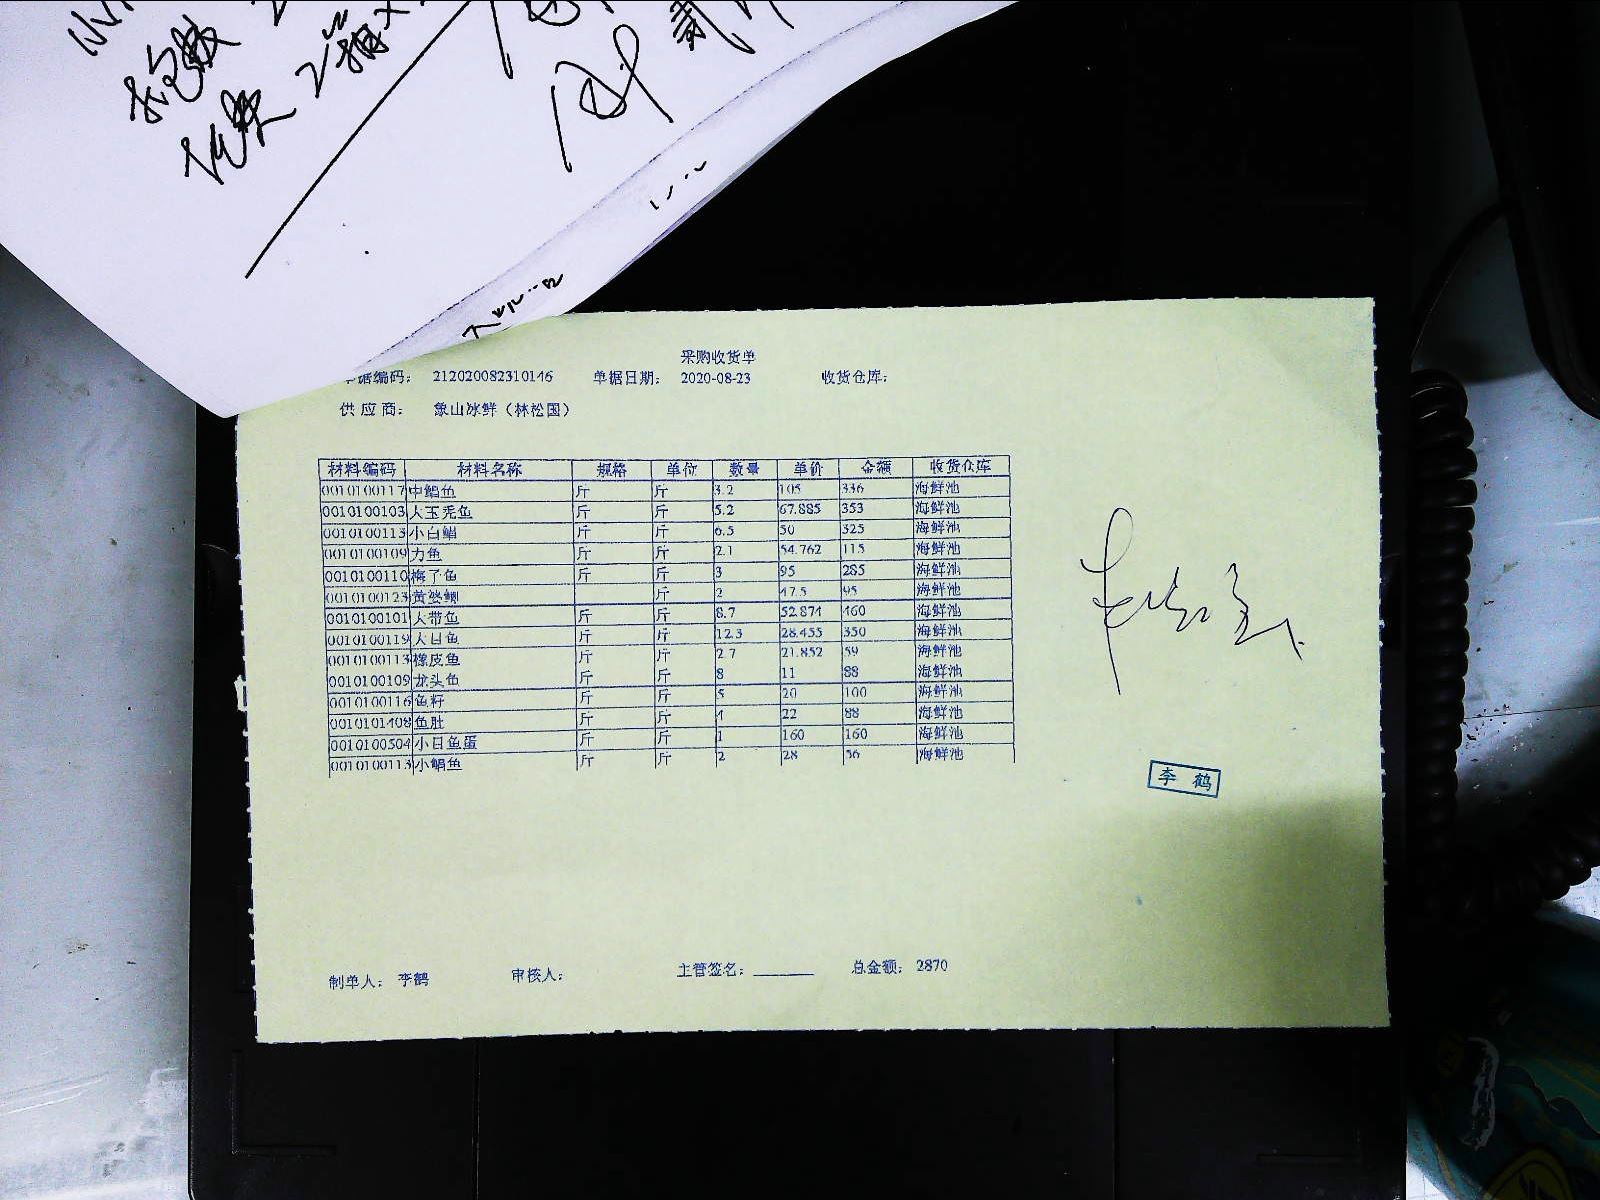 采购收货单
单据编码： 212020082310146 单据日期： 2020-08-23 收货仓库：
供 应 商： 象山冰鲜（林松国）
材料编码 材料名称 规格 单位 数量 单价 金额 收货仓库
0010100117 中鲳鱼 斤 斤 3.2 105 336 海鲜池
0010100103 大玉秃鱼 斤 斤 5.2 67.885 353 海鲜池
0010100113 小白鲳 斤 斤 6.5 50 325 海鲜池
0010100109 力鱼 斤 斤 2.1 54.762 115 海鲜池
0010100110 梅子鱼 斤 斤 3 95 285 海鲜池
0010100123 黄婆鲷 斤 2 47.5 95 海鲜池
0010100101 大带鱼 斤 斤 8.7 52.874 460 海鲜池
0010100119 大目鱼 斤 斤 12.3 28.455 350 海鲜池
0010100113 橡皮鱼 斤 斤 2.7 21.852 59 海鲜池
0010100109 龙头鱼 斤 斤 8 11 88 海鲜池
0010100116 鱼籽 斤 斤 5 20 100 海鲜池
0010101408 鱼肚 斤 斤 4 22 88 海鲜池
0010100504 小目鱼蛋 斤 斤 1 160 160 海鲜池
0010100113 小鲳鱼 斤 斤 2 28 56 海鲜池
李 鹤
制单人： 李鹤 审核人： 主管签名： 总金额： 2870